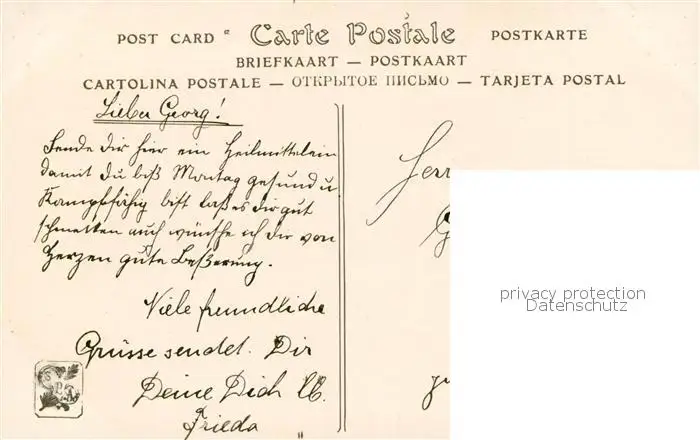 POST CARD Carte Postale POSTKARTE
BRIEFKAART — POSTKAART
CARTOLINA POSTALE — ОТКРЫТОЕ ПИСЬМО — TARJETA POSTAL
Lieber Georg!
Sende Dir hier ein Heilmittelein
damit du biß Montag gesund u
Kampffähig bist laß es dir gut
schmecken auch wünsche ich dir von
Herzen gute Beßerung.
Viele freundliche
Grüsse sendet. Dir
Deine Dich lb.
Frieda
Herr
privacy protection
Datenschutz